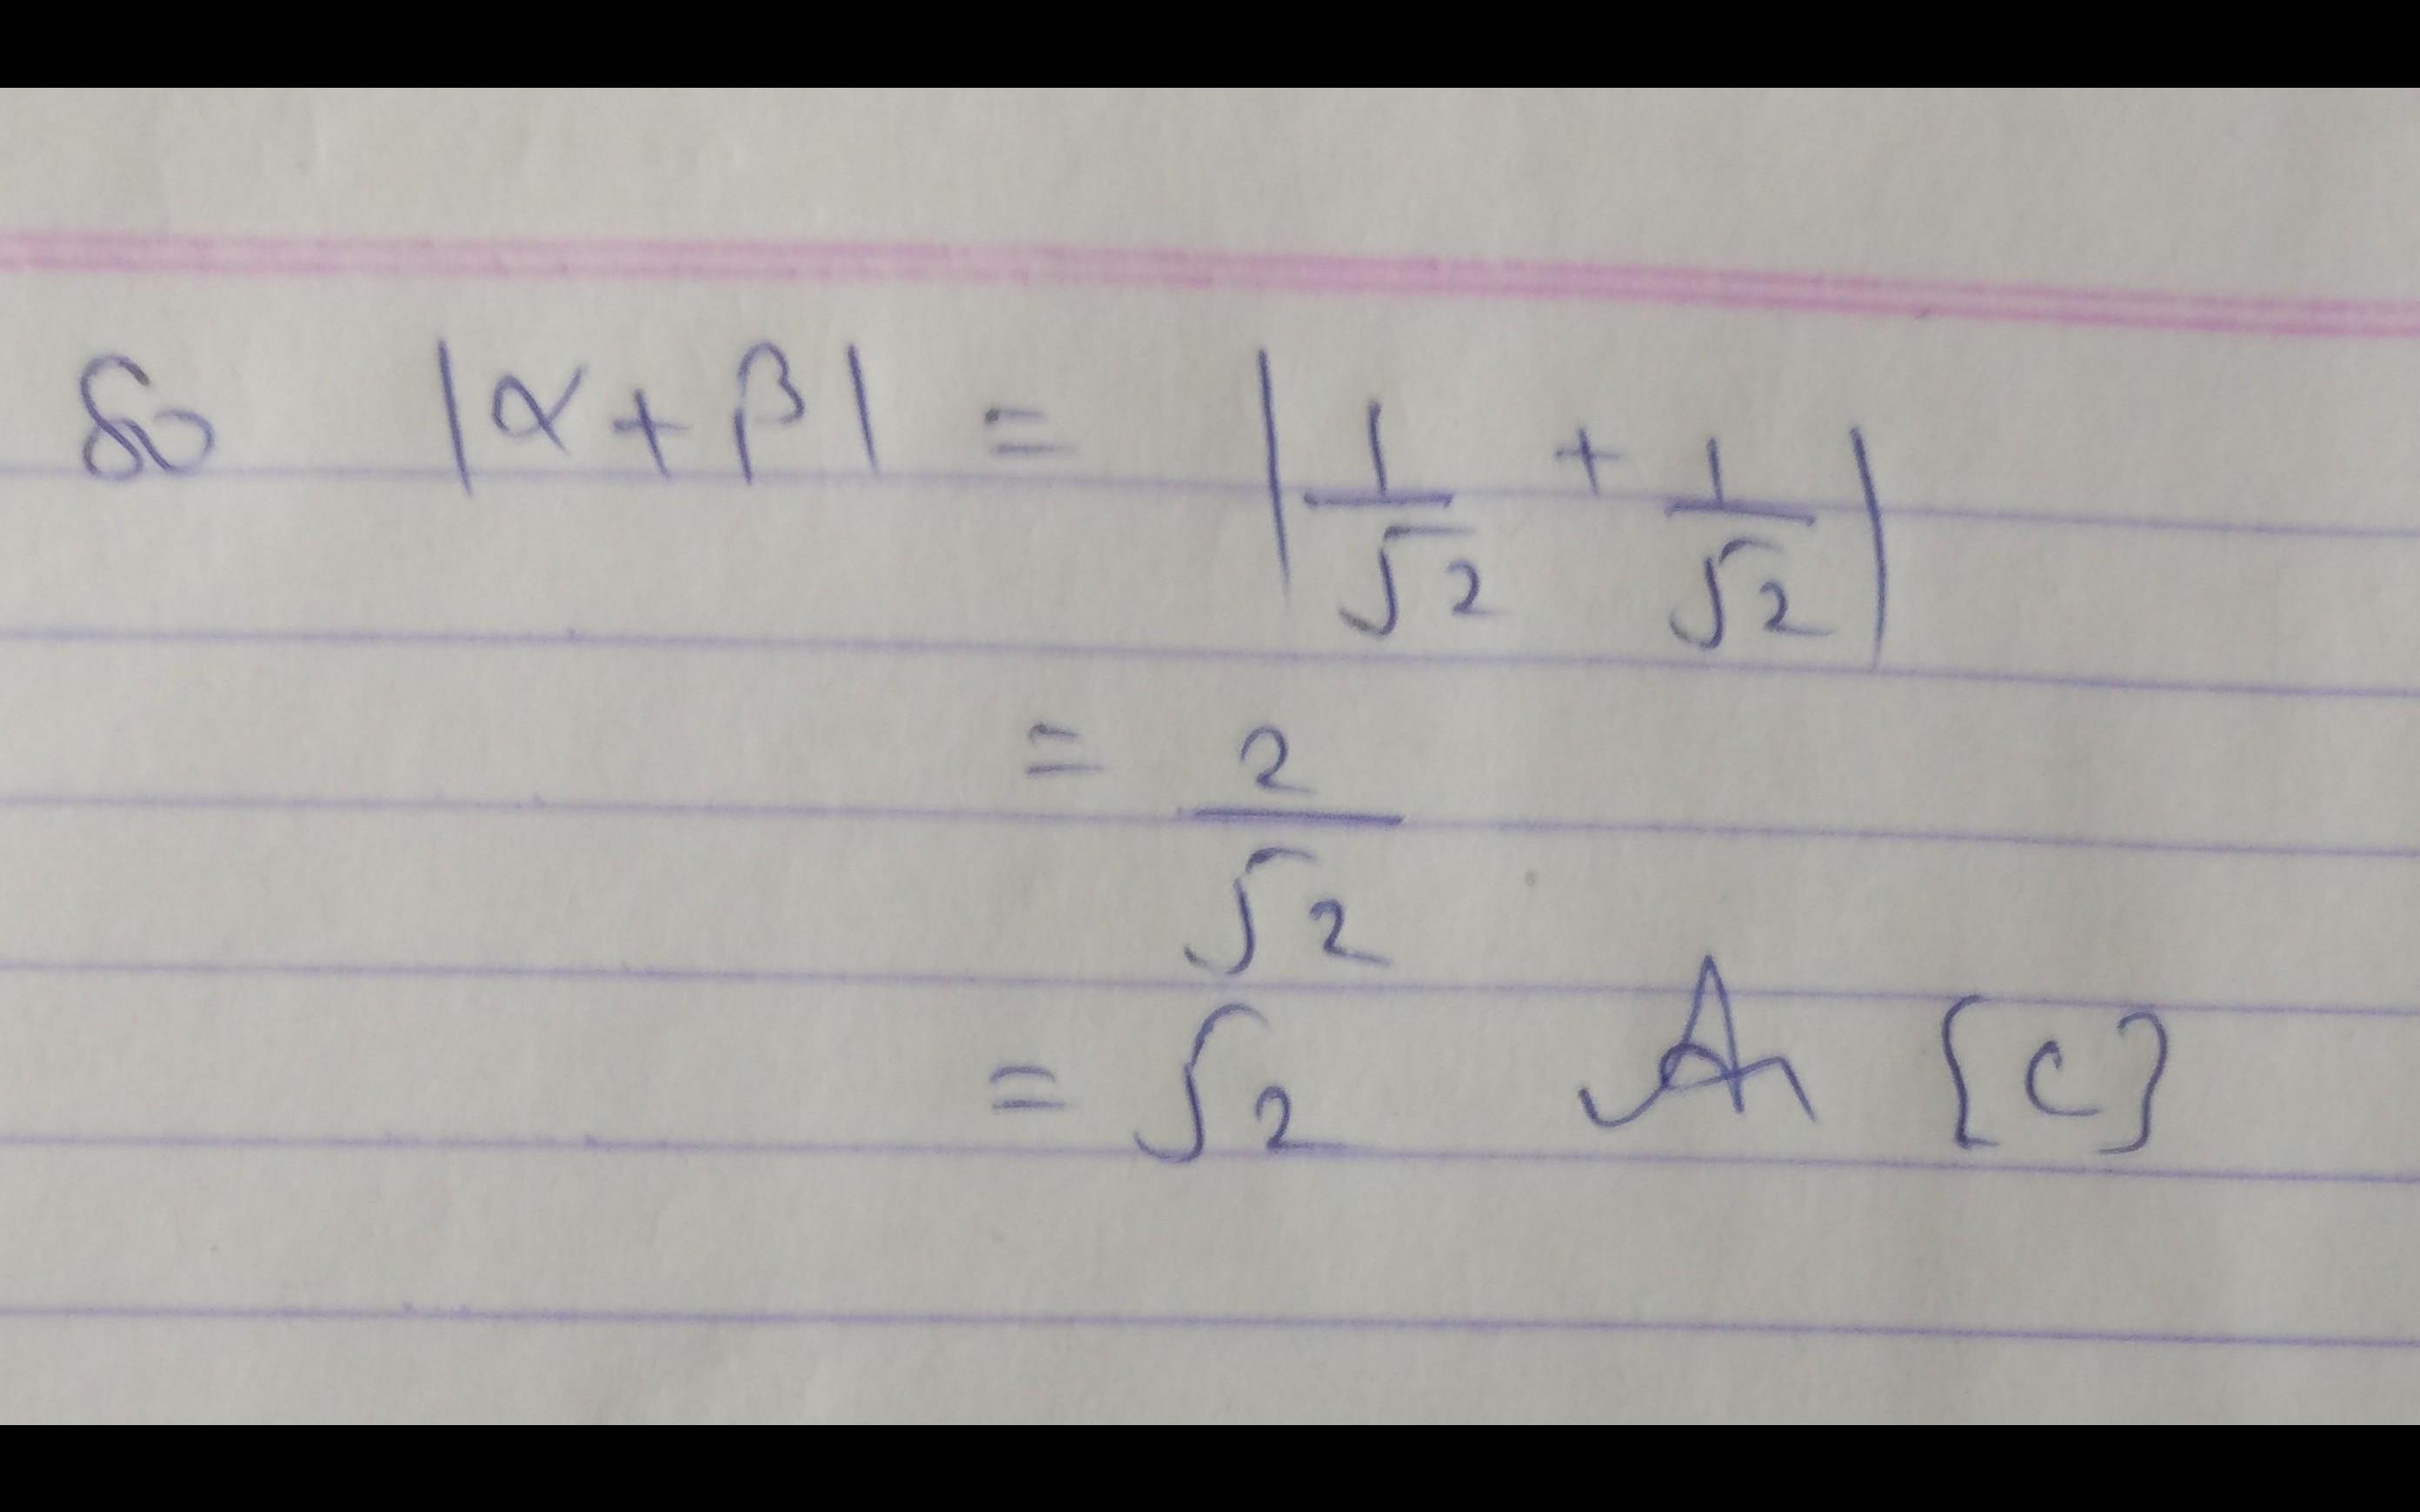 So |α + β| = |1/√2 + 1/√2|
= 2/√2
= √2 An [C]